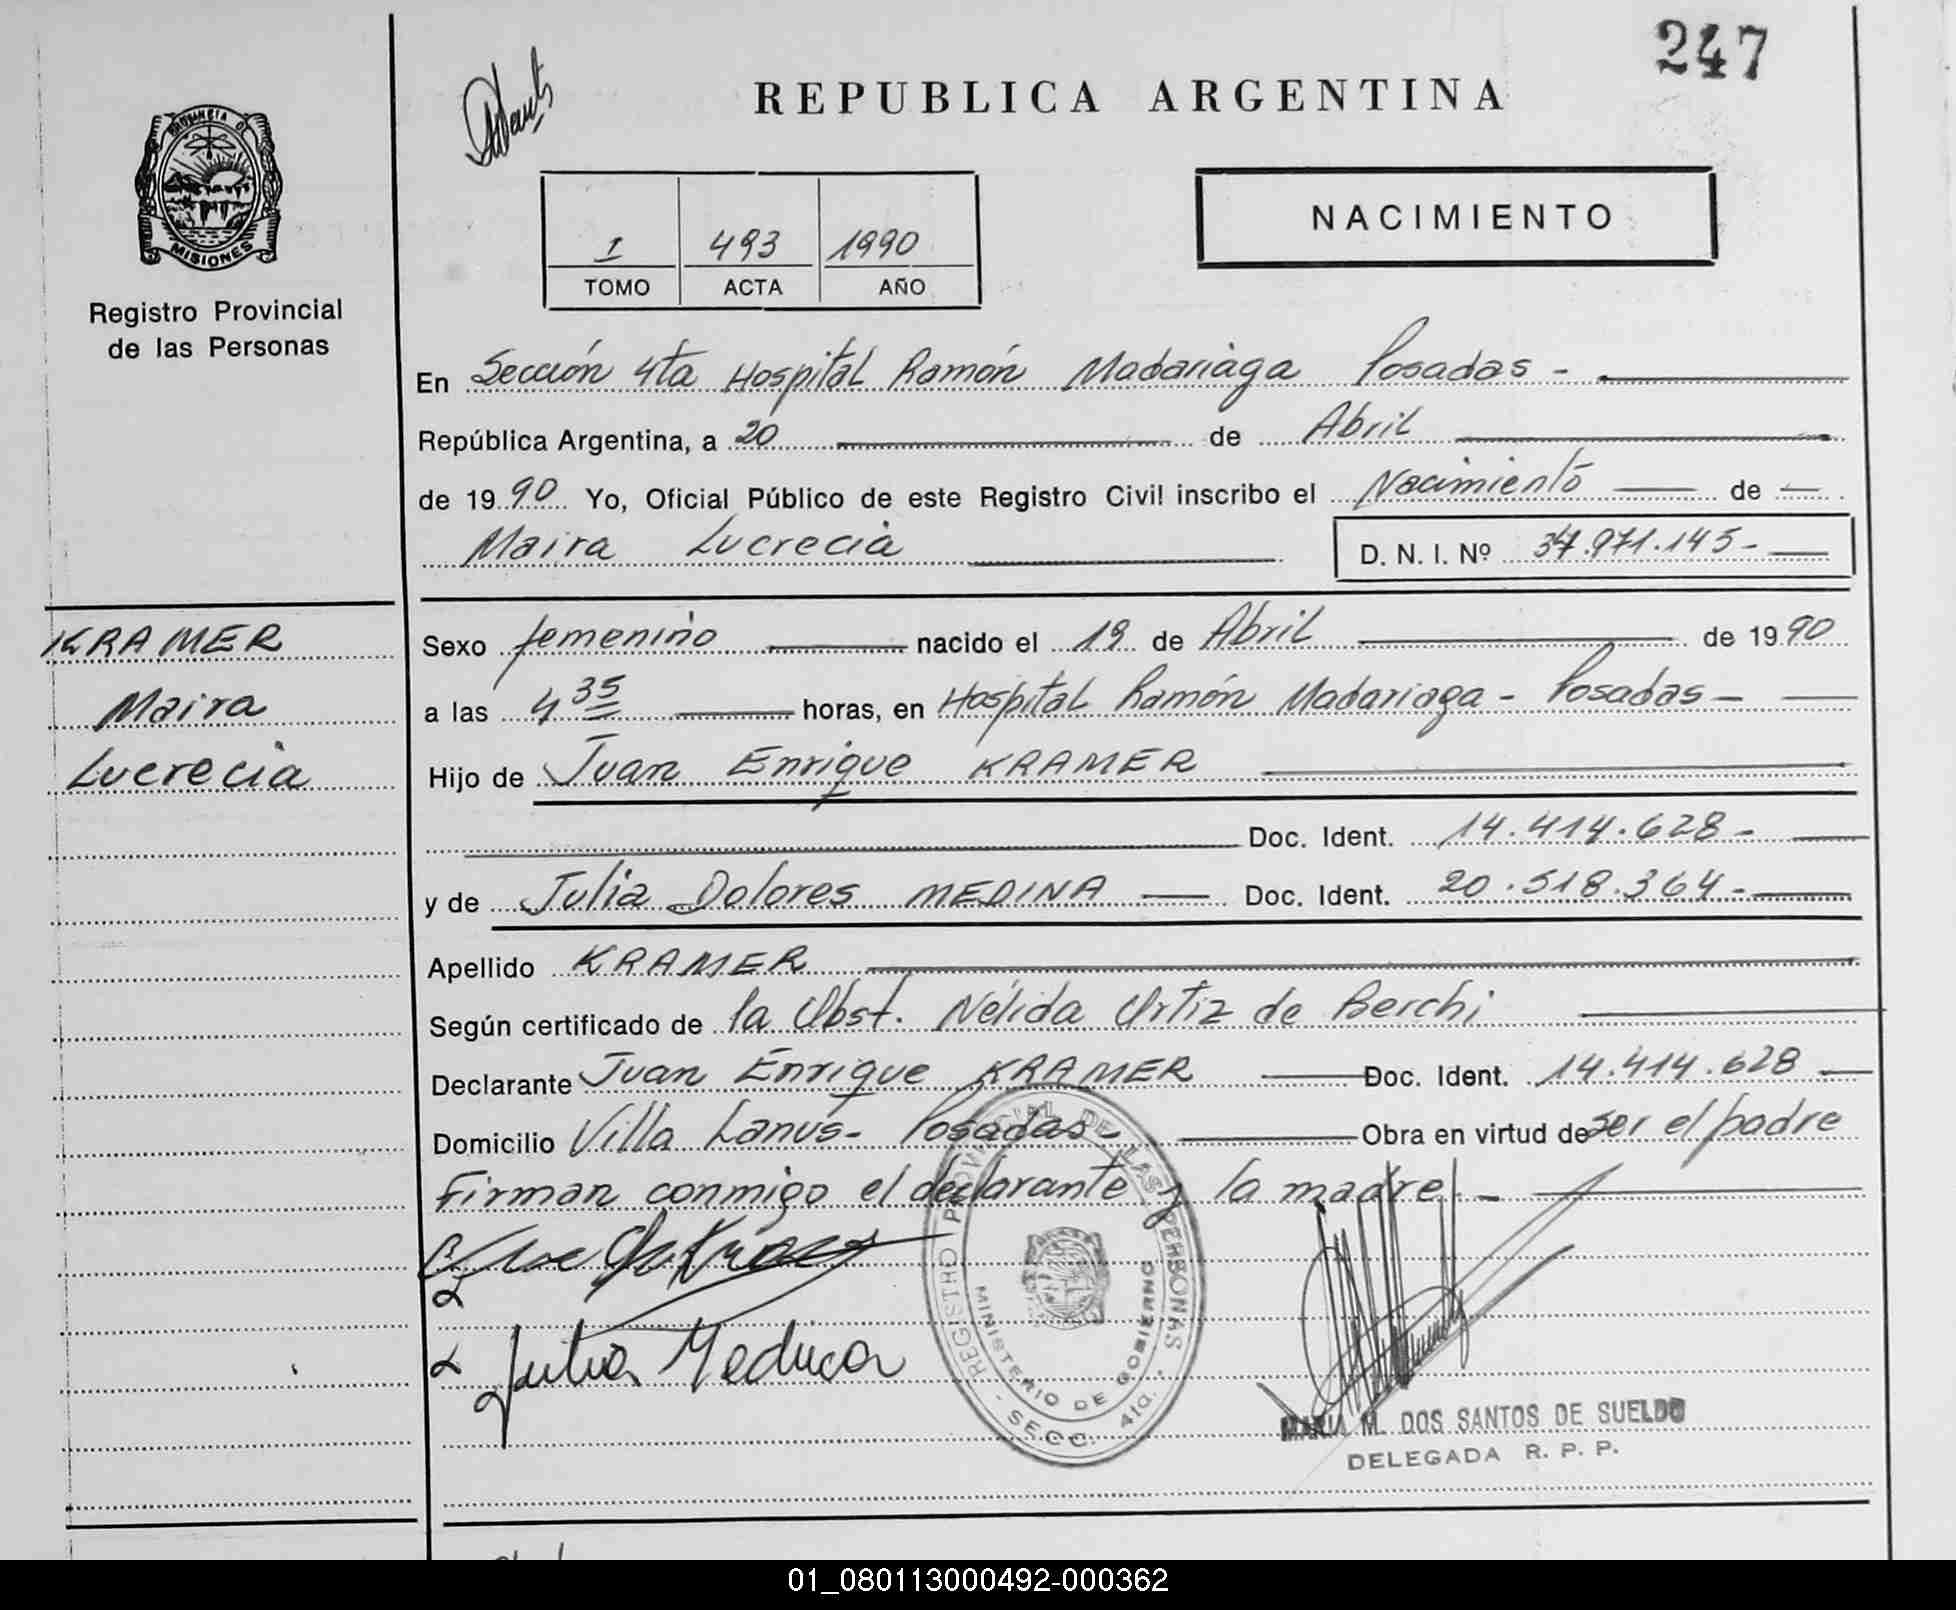 247
REPUBLICA ARGENTINA
PROVINCIA D
MISIONES
Registro Provincial
de las Personas
I 493 1990
TOMO ACTA AÑO
NACIMIENTO
En Sección 4ta Hospital Ramón Madariaga Posadas -
República Argentina, a 20 de Abril
de 1990 Yo, Oficial Público de este Registro Civil inscribo el Nacimiento de
Maira Lucrecia D. N. I. Nº 34.971.145-
KRAMER
Maira
Lucrecia
Sexo femenino nacido el 19 de Abril de 1990
a las 4 35 horas, en Hospital Ramón Madariaga - Posadas -
Hijo de Juan Enrique KRAMER
Doc. Ident. 14.414.628-
y de Julia Dolores MEDINA Doc. Ident. 20.518.364-
Apellido KRAMER
Según certificado de la Obst. Nélida Ortiz de Berchi
Declarante Juan Enrique KRAMER Doc. Ident. 14.414.628
Domicilio Villa Lanús - Posadas - Obra en virtud de ser el padre
Firman conmigo el declarante y la madre -
Julia Medina
REGISTRO PROVINCIAL DE LAS PERSONAS
MINISTERIO DE GOBIERNO
- SECC. 4ta. -
MARIA M. DOS SANTOS DE SUELDO
DELEGADA R. P. P.
01_080113000492-000362